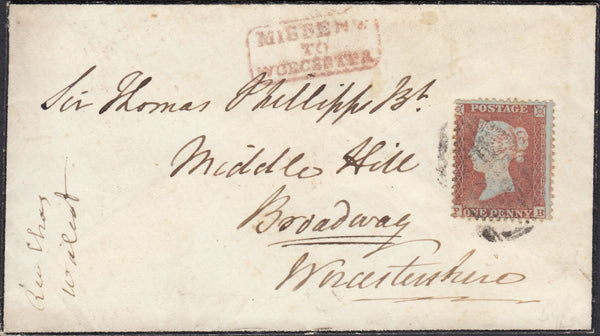 MISSENT
TO
WORCESTER
Sir Thomas Phillipps Bt.
Middle Hill
Broadway
Worcestershire
POSTAGE
ONE PENNY B